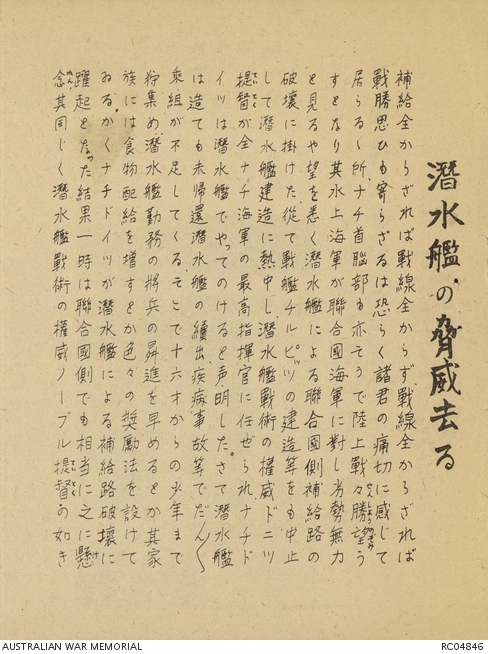 潜水艦の脅威去る
補給全からざれば戦線全からず戦線全からざれば
戦勝思ひも寄らざるは恐らく諸君の痛切に感じて
居らるゝ所、ナチ首脳部も亦そうで陸上戦々勝望う
すとなり其水上海軍が聯合國海軍に對し劣勢無力
と見るや望を悉く潜水艦による聯合國側補給路の
破壊に掛けた從て戦艦チルピッツの建造等をも中止
して潜水艦建造に熱中し潜水艦戦術の權威ドニツ
提督が全ナチ海軍の最高指揮官に任ぜられナチド
イツは潜水艦でやってのけると声明した。さて潜水艦
は造ても未帰還潜水艦の續出疾病事故等でだん〱
乗組が不足してくるそこで十六才からの少年まで
狩集め潜水艦勤務の將兵の昇進を早めるとか其家
族には食物配給を増すとか色々の奬勵法を設けて
ゐる。かくナチドイツが潜水艦による補給路破壊に
躍起となった結果一時は聯合國側でも相当に之に懸
念其同じく潜水艦戦術の權威ノーブル提督の如き
AUSTRALIAN WAR MEMORIAL
RC04846